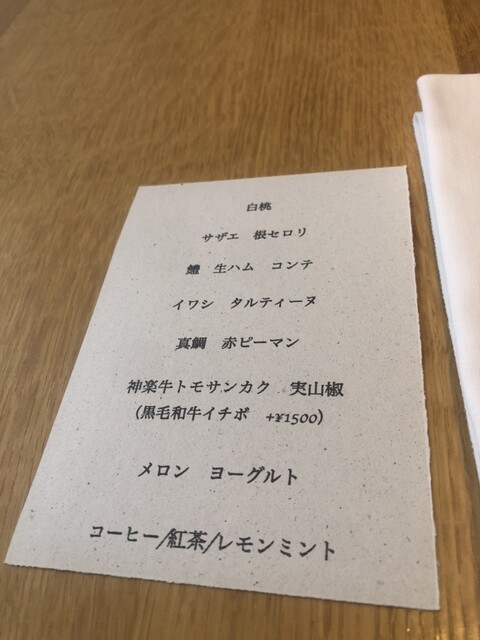 白桃
サザエ 根セロリ
鱧 生ハム コンテ
イワシ タルティーヌ
真鯛 赤ピーマン
神楽牛トモサンカク 実山椒
(黒毛和牛イチボ +¥1500)
メロン ヨーグルト
コーヒー/紅茶/レモンミント